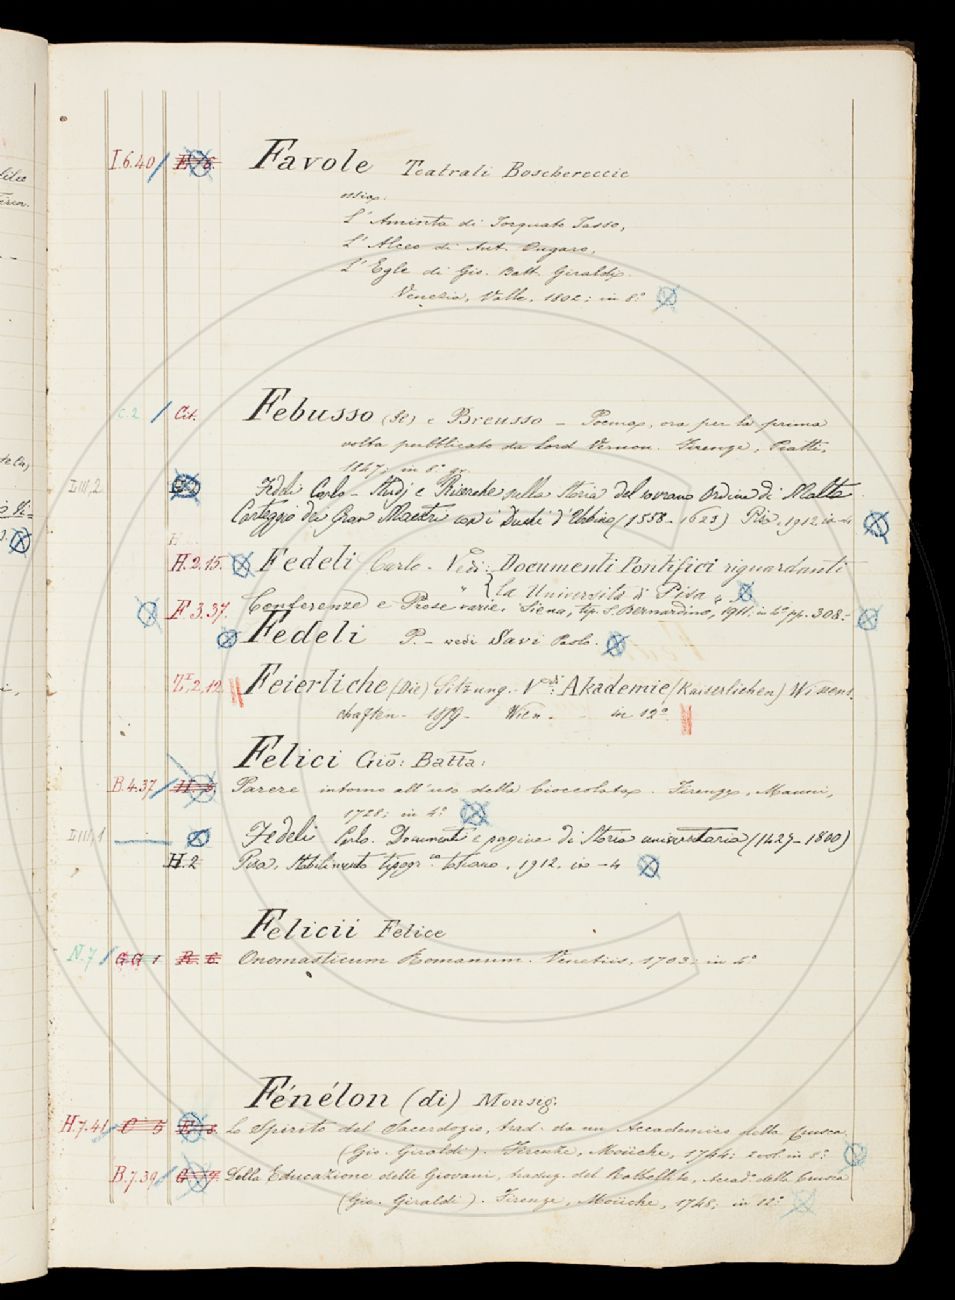 I.6.40 Favole Teatrali Boschereccie
ossia:
L'Aminta di Torquato Tasso,
L'Alceo di Ant. Ongaro,
L'Egle di Gio. Batt. Giraldi.
Venezia, Valle, 1802; in 8.°
C.2 Cit. Febusso (Il) e Breusso – Poema, ora per la prima
volta pubblicato da Lord Vernon. Firenze, Piatti,
1847, in 8.° gr.
Fedeli Carlo – Studj e Ricerche sulla Storia del sovrano Ordine di Malta
Carteggio dei Gran Maestri con i Duchi d'Urbino (1558–1623) Pisa, 1912, in-4
H.2.15. Fedeli Carlo. Vedi: Documenti Pontifici riguardanti
la Università di Pisa
F.3.37. Conferenze e Prose varie. Siena, tip. S. Bernardino, 1911. in 4° pp. 308.
Fedeli P. – vedi Savi Paolo.
2.12 Feierliche (Die) Sitzung. Vedi: Akademie (Kaiserlichen) Wissens
chaften – Wien – in 12°
Felici Gio: Batta:
B.4.37 Parere intorno all'uso della Cioccolata. Firenze, Manni,
1728; in 4.°
Fedeli Carlo. Documenti e pagine di Storia universitaria (1427–1800)
H.2 Pisa, Stabilimento tipogr. toscano, 1912, in-4
Felicii Felice
N.7 GG 1 R. 6. Onomasticum Romanum. Venetiis, 1703; in 4°
Fénélon (di) Monsig.
H.7.41 Lo Spirito del Sacerdozio, trad. da un Accademico della Crusca
(Gio. Giraldi). Firenze, Moücke, 1744; 2 vol. in 8.°
B.7.39 Della Educazione delle Giovani, traduz. del Accad. della Crusca
(Gio. Giraldi). Firenze, Moücke, 1748; in 12.°